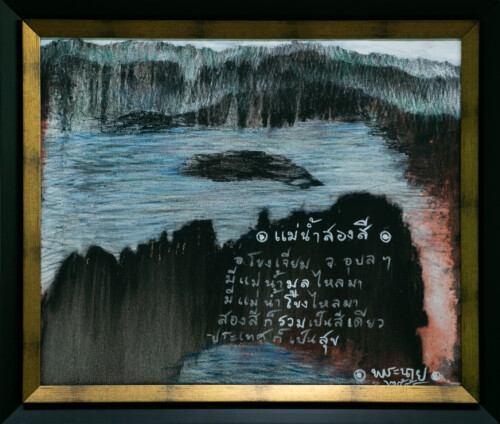 ๏ แม่น้ำสองสี ๏
อ.โขงเจียม จ.อุบลฯ
มีแม่น้ำมูลไหลมา
มีแม่น้ำโขงไหลมา
สองสีก็รวมเป็นสีเดียว
ประเทศก็เป็นสุข
๏ พระนาย ๏